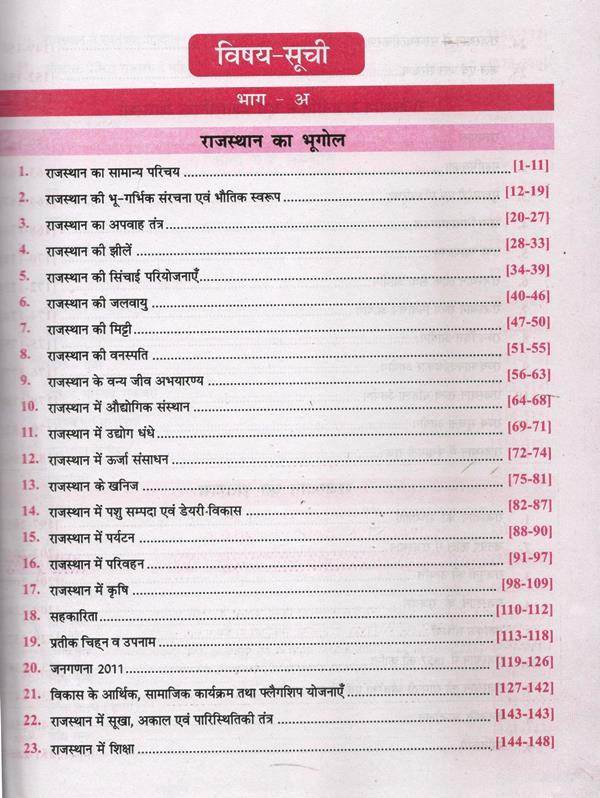 विषय-सूची
भाग - अ
राजस्थान का भूगोल
1. राजस्थान का सामान्य परिचय [1-11]
2. राजस्थान की भू-गर्भिक संरचना एवं भौतिक स्वरूप [12-19]
3. राजस्थान का अपवाह तंत्र [20-27]
4. राजस्थान की झीलें [28-33]
5. राजस्थान की सिंचाई परियोजनाएँ [34-39]
6. राजस्थान की जलवायु [40-46]
7. राजस्थान की मिट्टी [47-50]
8. राजस्थान की वनस्पति [51-55]
9. राजस्थान के वन्य जीव अभयारण्य [56-63]
10. राजस्थान में औद्योगिक संस्थान [64-68]
11. राजस्थान में उद्योग धंधे [69-71]
12. राजस्थान में ऊर्जा संसाधन [72-74]
13. राजस्थान के खनिज [75-81]
14. राजस्थान में पशु सम्पदा एवं डेयरी-विकास [82-87]
15. राजस्थान में पर्यटन [88-90]
16. राजस्थान में परिवहन [91-97]
17. राजस्थान में कृषि [98-109]
18. सहकारिता [110-112]
19. प्रतीक चिह्न व उपनाम [113-118]
20. जनगणना 2011 [119-126]
21. विकास के आर्थिक, सामाजिक कार्यक्रम तथा फ्लैगशिप योजनाएँ [127-142]
22. राजस्थान में सूखा, अकाल एवं पारिस्थितिकी तंत्र [143-143]
23. राजस्थान में शिक्षा [144-148]